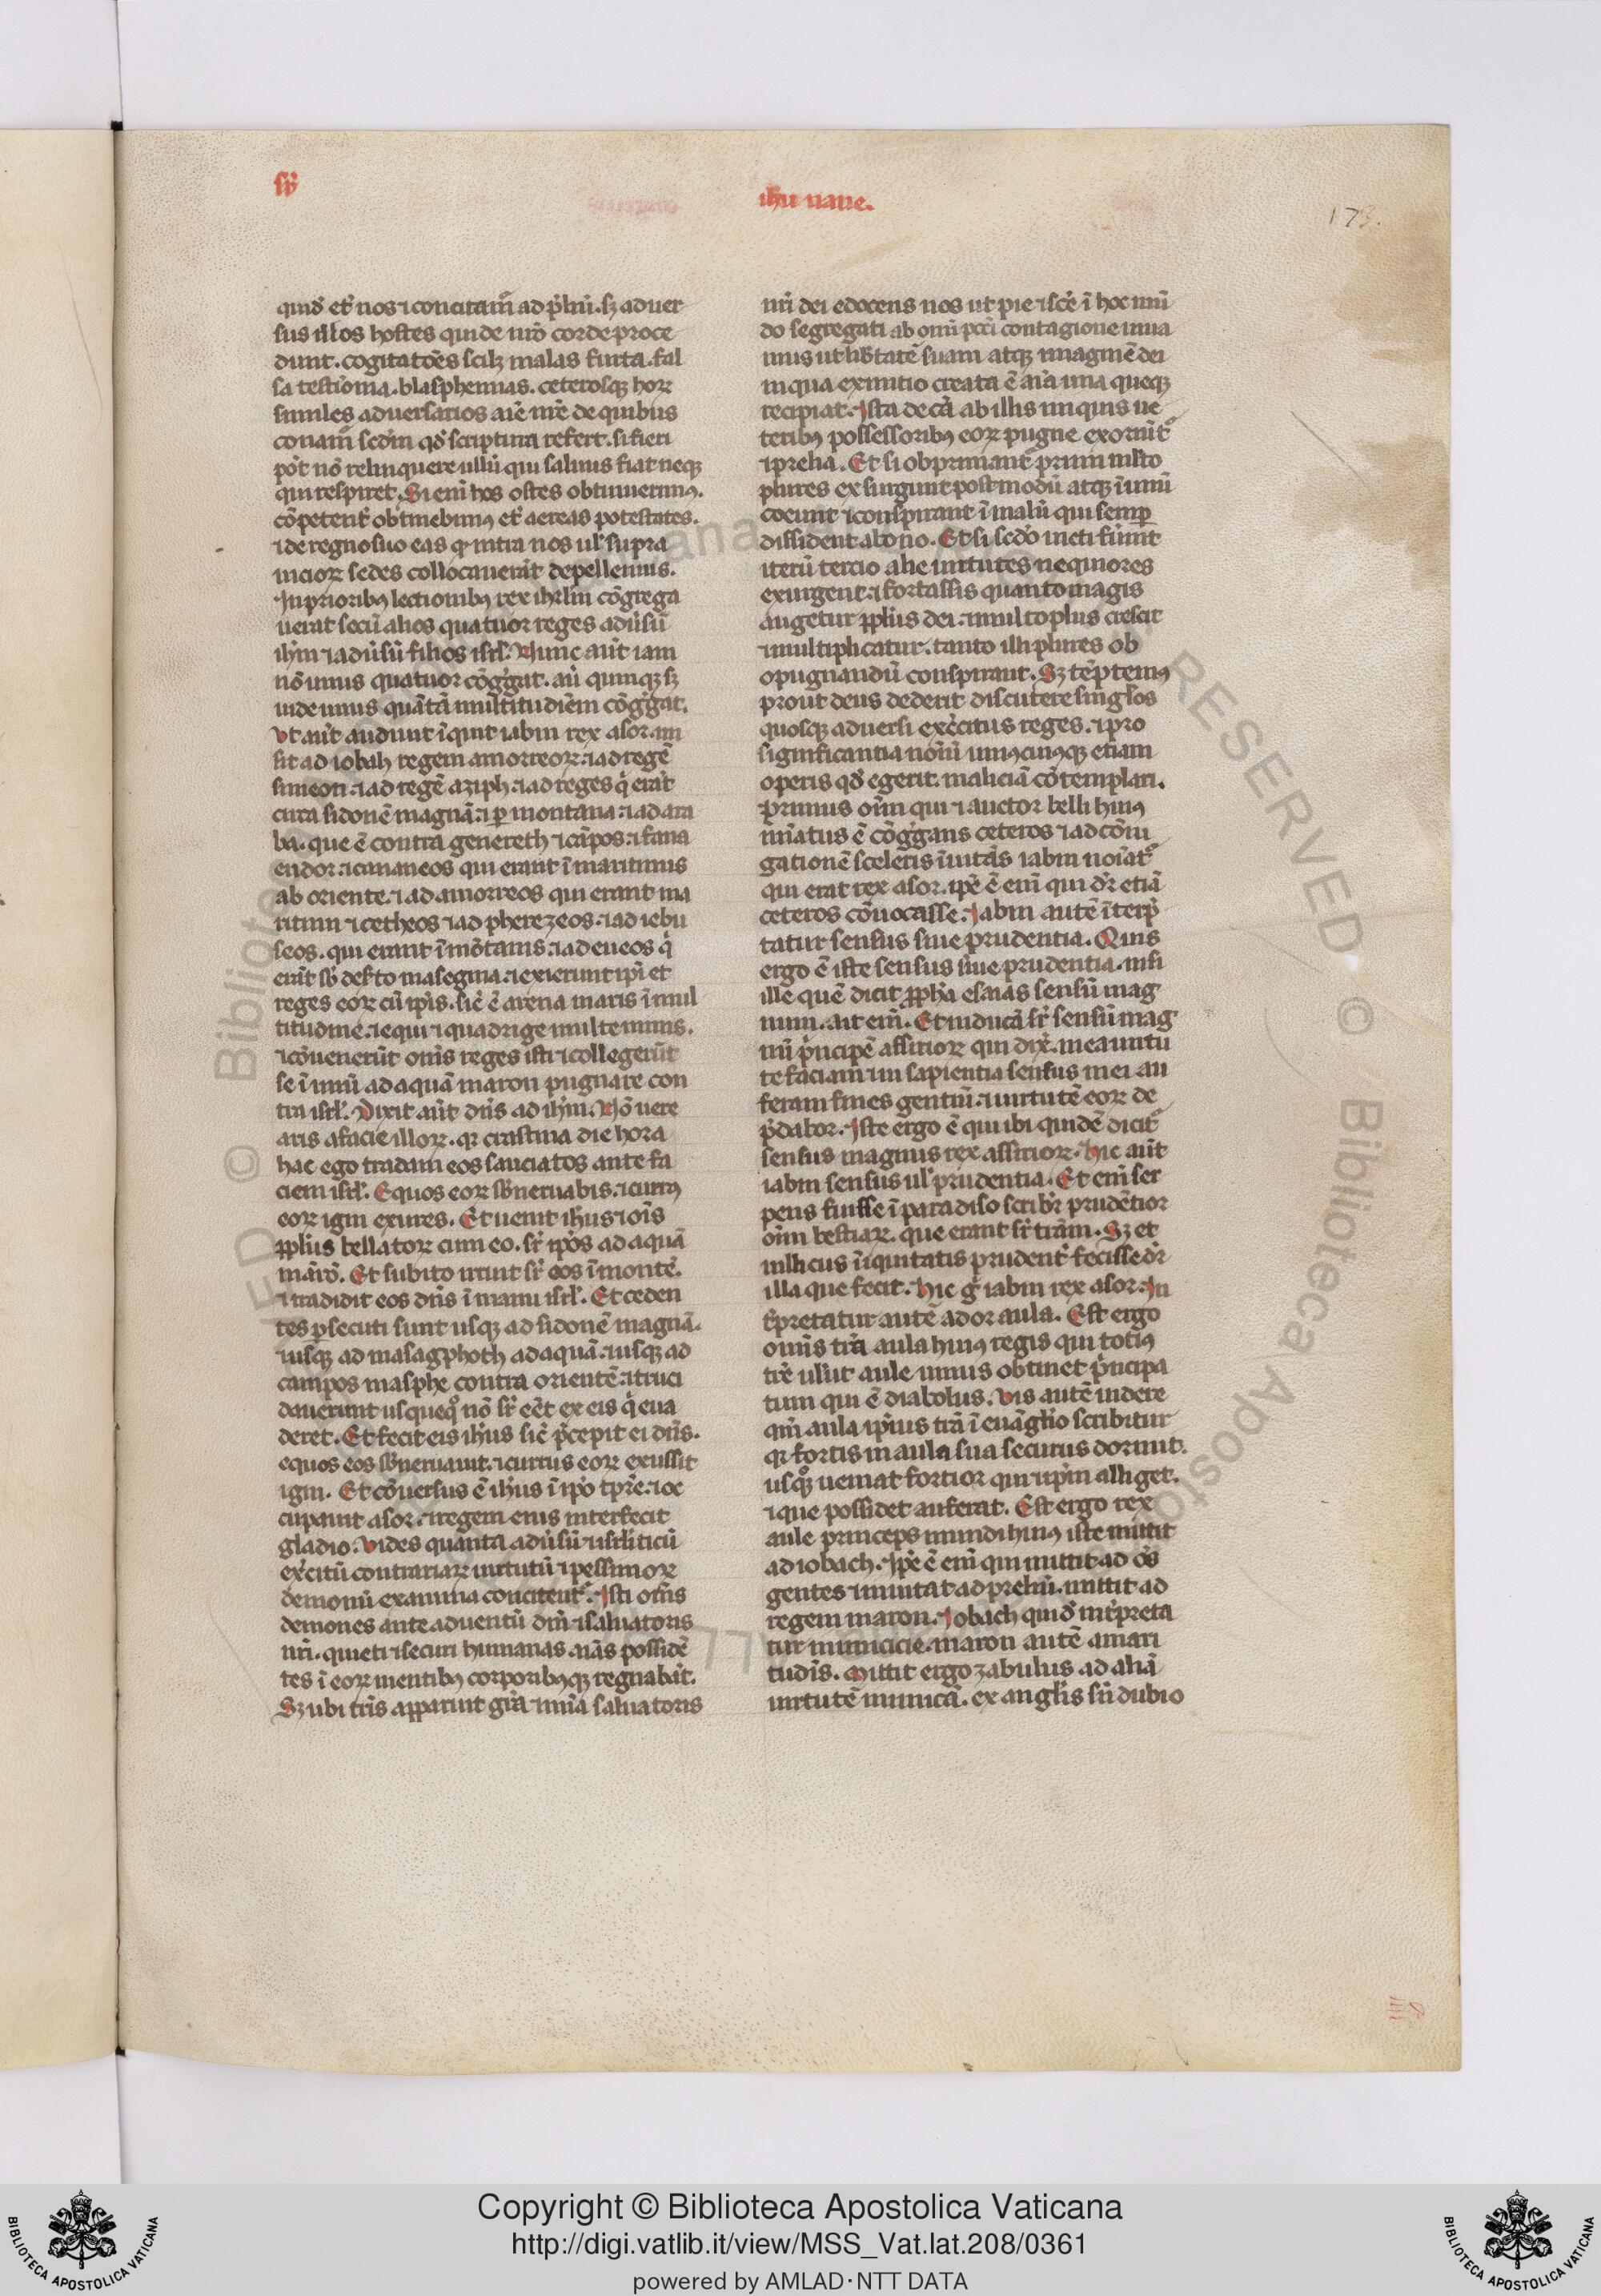 sup̄
ihu naue.
173.
quid̄ et̄ nos ⁊ concitam᷑ ad p̄liū. sꝫ aduer
sus illos hostes qui de nr̄o corde proce
dunt. cogitatōes scilꝫ malas furta. fal
sa testi͏̄onia. blasphemias. ceterosqꝫ hoꝝ
similes aduersarios aīe nr̄e de quibus
conam᷑ sed̄m qd̄ scriptura refert. si fieri
pōt nō relinquere ullū qui saluus fiat neqꝫ
qui respiret. Si eni hos ostes obtinuerimꝰ.
cōpetent̄ obtinebimꝰ et̄ aereas potestates.
⁊ de regno suo eas q̄ intra nos ul̄ supra
uicioꝝ sedes collocauerāt depellemus.
In prioribꝰ lectionibꝰ rex ihrlm cōgrega
uerat secū alios quatuor reges adūsū
ihm̄ ⁊ adūsū filios isrl̄. Nunc aūt iam
nō unus quatuor cōḡgat. aū quinqꝫ sꝫ
uide unus quātā multitudiēm cōḡgat.
Vt aūt audiuit īquit iabin rex asor. mi
sit ad iobab regem amorreoꝝ. ⁊ ad regē
simeon. ⁊ ad regē aziph. ⁊ ad reges q̄ erāt
circa sidonē magnā. ⁊ ꝑ montana. ⁊ ad ara
ba. que ē contra genereth ⁊ cāpos. ⁊ fana
endor. ⁊ cananeos qui erant ī maritimis
ab oriente. ⁊ ad amorreos qui erant ma
ritimi ⁊ cetheos ⁊ ad pherezeos. ⁊ ad iebu
seos. qui erant ī mōtanis. ⁊ ad eueos q̄
erāt sb̄ defto masegma. ⁊ exierunt ip̄i et
reges eoꝝ cū ip̄is. sic̄ ē arena maris ī mul
titudine. ⁊ equi ⁊ quadrige multe nimis.
⁊ cōuenerūt om̄s reges isti ⁊ collegerūt
se ī unū ad aquā maron pugnare con
tra isrl̄. Dixit aūt dn̄s ad ihm̄. Nō uere
aris a facie illoꝝ. qꝛ crastina die hora
hac ego tradam eos sauciatos ante fa
ciem isrl̄. Equos eoꝝ sb̄neruabis. ⁊ currꝰ
eoꝝ igni exures. Et uenit ihūs ⁊ oīs
pp̄lus bellatoꝝ cum eo. sr̄ ip̄os ad aquā
marō. Et subito irruit sr̄ eos ī montē.
⁊ tradidit eos dn̄s ī manu isrl̄. Et ceden
tes ꝑsecuti sunt usqꝫ ad sidonē magnā.
⁊ usqꝫ ad masagphoth ad aquā. ⁊ usqꝫ ad
campos masphe contra orientē. ⁊ truci
dauerunt usqueqͦ nō sr̄ eēt ex eis q̄ eua
deret. Et fecit eis ihūs sic̄ p̄cepit ei dn̄s.
equos eos sb̄neruauit. ⁊ currus eoꝝ exussit
igni. Et cōuersus ē ihūs ī ip̄o tp̄re. ⁊ oc
cupauit asor. ⁊ regem eius interfecit
gladio. Vides quanta adūsū isrl̄iticū
ex̄citū contrariaꝝ uirtutū ⁊ pessimoꝝ
demonū examina concitent᷑. Isti om̄s
demones ante aduentū dn̄i ⁊ saluatoris
nr̄i. quieti ⁊ securi humanas aīas possidē
tes ī eoꝝ mentibꝰ corporibꝰqꝫ regnabāt.
Sꝫ ubi tr̄is apparuit gr̄a ⁊ mīa saluatoris
nr̄i dei edocens nos ut pie ⁊ scē ī hoc mū
do segregati ab omī pccī contagione uiua
mus ut lib̄tatē suam atqꝫ imaginē dei
in qua ex initio creata ē aīa una queqꝫ
recipiat. Ista de cā ab illis iniquis ue
teribꝰ possessoribꝰ eoꝝ pugne exoriūt᷑
⁊ prelia. Et si obprimant᷑ primi m̄lto
plures exsurgunt postmodū atqꝫ ī unū
coeunt ⁊ conspirant ī malū qui semꝑ
dissident a bono. Et si scd̄o uicti fūint
iterū tercio alie uirtutes nequiores
exurgent. ⁊ fortassis quanto magis
augetur pp̄lus dei. ⁊ multo plus crescit
⁊ multiplicatur. tanto illi plures ob
opugnandū conspirant. Sꝫ tēptemꝰ
prout deus dederit discutere singl̄os
quosqꝫ aduersi exc̄citus reges. ⁊ pro
significantia noīū uniꝰcuiꝰqꝫ etiam
operis qd̄ egerit. maliciā cōtemplari.
Primus oīm qui ⁊ auctor belli huiꝰ
nūatus ē cōḡgans ceteros ⁊ ad cōiu
gationē sceleris īuitās iabin noīat᷑
qui erat rex asor. ip̄e ē eni qui dr̄ etiā
ceteros cōuocasse. Iabin autē īterp̄
tatur sensus siue prudentia. Quis
ergo ē iste sensus siue prudentia. nisi
ille quē dicit pp̄ha esaias sensū mag
num. ait eni. Et inducā sr̄ sensū mag
nū p̄ncipē assirioꝝ qui dix̄. mea uirtu
te faciam ⁊ in sapientia sensus mei au
feram fines gentiū. ⁊ uirtutē eoꝝ de
p̄dabor. Iste ergo ē qui ibi quidē dicit᷑
sensus magnus rex assirioꝝ. Hic aūt
iabin sensus ul̄ prudentia. Et eni ser
pens fuisse ī paradiso scribr̄ prudētior
oīm bestiaꝝ. que erant sr̄ trām. Sꝫ et
uillicus īiquitatis prudent̄ fecisse dr̄
illa que fecit. Hic g̅ iabin rex asor. In
t̄pretatur autē ador aula. Est ergo
omīs tr̄a aula huiꝰ regis qui totiꝰ
tr̄e uel̄ut aule unius obtinet p̄ncipa
tum qui ē diabolus. Vis autē uidere
qm̄ aula ip̄ius tr̄a ī euāgl̄io scribitur
qꝛ fortis in aula sua securus dormit.
usqꝫqͦ ueniat fortior qui ⁊ ip̄m alliget.
⁊ que possidet auferat. Est ergo rex
aule princeps mundi huiꝰ iste mittit
ad iobach. Ip̄e ē eni qui mittit ad om̄s
gentes ⁊ inuitat ad preliū. mittit ad
regem maron. Iobach quid̄ int̄preta
tur inimicicie. maron autē amari
tudīs. Mittit ergo zabulus ad aliā
uirtutē inimicā. ex angl̄is sn̄ dubio
Copyright © Biblioteca Apostolica Vaticana
http://digi.vatlib.it/view/MSS_Vat.lat.208/0361
powered by AMLAD·NTT DATA